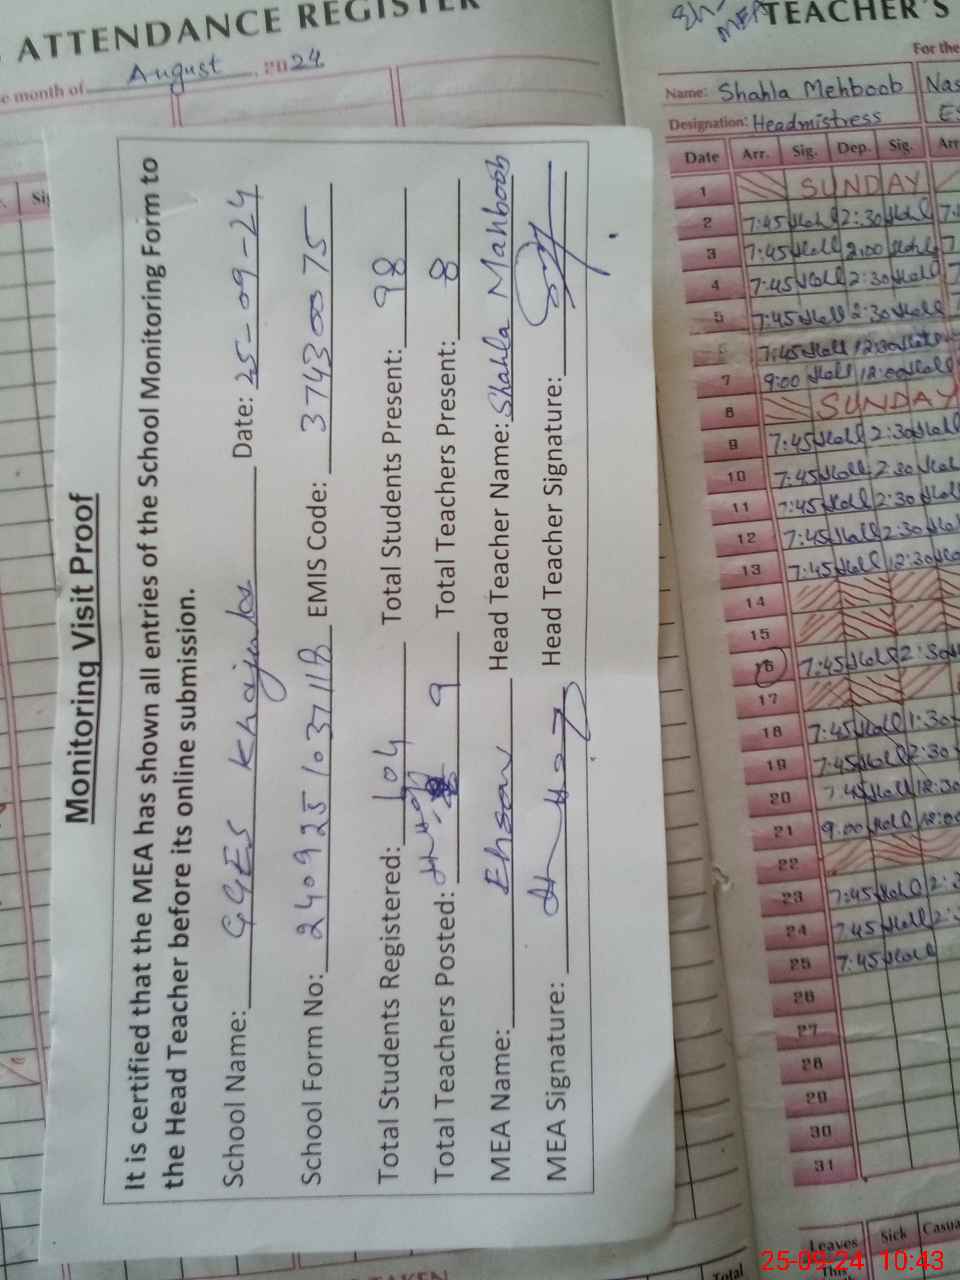 ATTENDANCE REGISTER
e month of August, 2024
Monitoring Visit Proof
It is certified that the MEA has shown all entries of the School Monitoring Form to
the Head Teacher before its online submission.
School Name: GGES Khajuta Date: 25-09-24
School Form No: 2409251037118 EMIS Code: 37430075
Total Students Registered: 104 Total Students Present: 98
Total Teachers Posted: 9 Total Teachers Present: 8
MEA Name: Ehsan Head Teacher Name: Shahla Mahboob
MEA Signature: Head Teacher Signature:
MEA TEACHER'S
For the
Name: Shahla Mehboob Nas
Designation: Headmistress
Date Arr. Sig. Dep. Sig. Arr
1 SUNDAY
2 7:45 2:30
3 7:45 2:00
4 7:45 2:30
5 7:45 2:30
6 7:45 12:30
7 9:00 12:00
8 SUNDAY
9 7:45 2:30
10 7:45 2:30
11 7:45 2:30
12 7:45 2:30
13 7:45 12:30
14
15
16 7:45 2:30
17
18 7:45 1:30
19 7:45 2:30
20 7:45 12:30
21 9:00 12:00
22
23 7:45 2:3
24 7:45 2:3
25 7:45
26
27
28
29
30
31
Leaves Sick Casua
This
Total
TAKEN
25-09-24 10:43